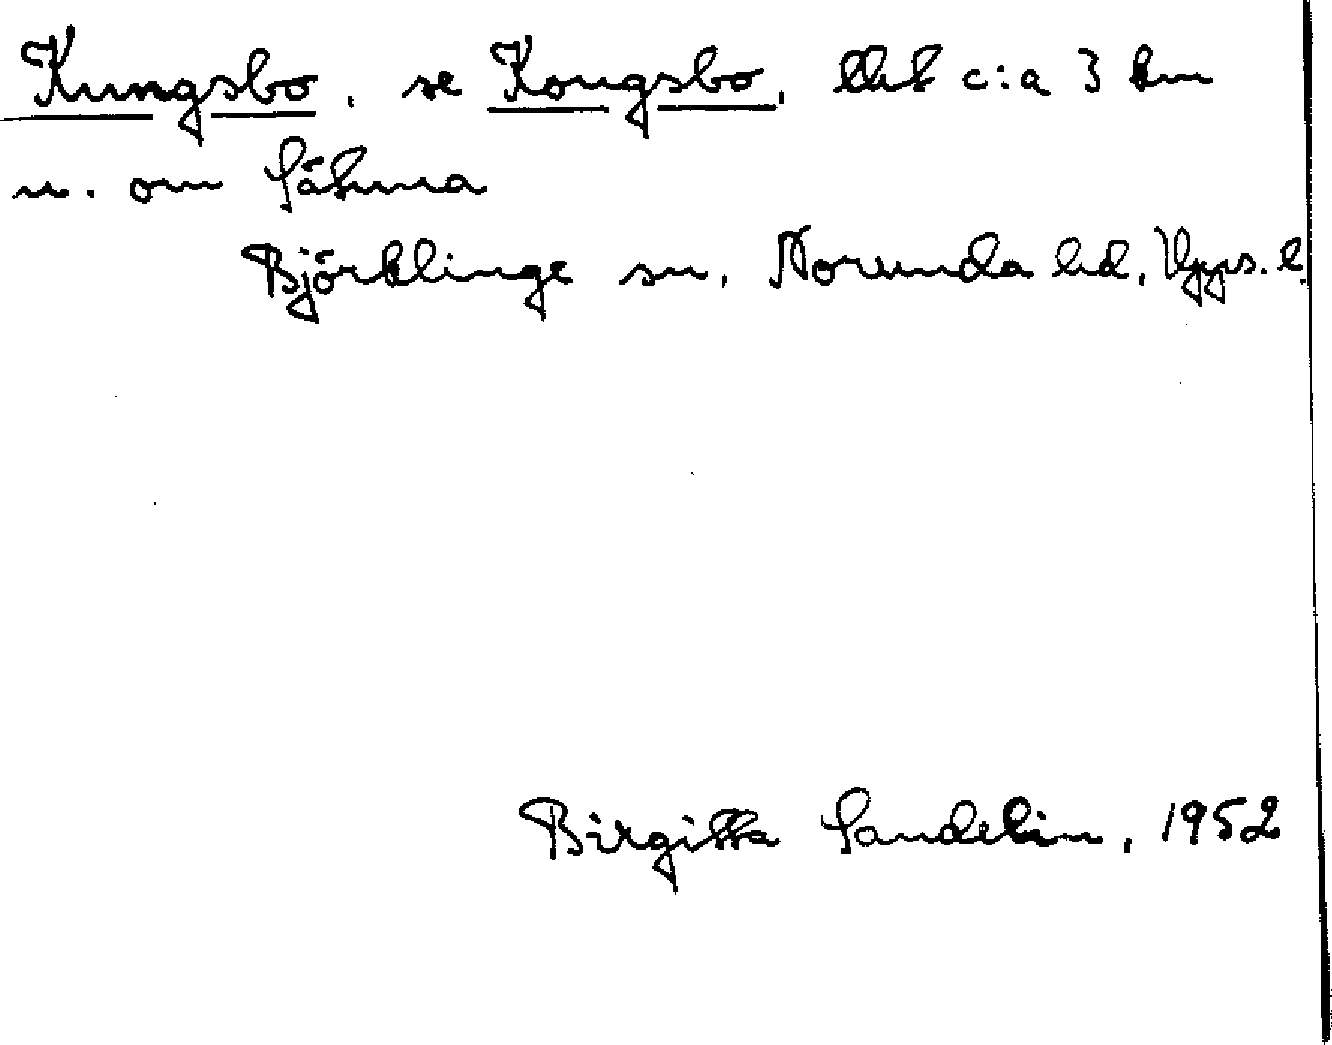 Kungsbo, se Kongsbo, c:a 3 km
n. om Sätuna
Björklinge sn, Norunda hd, Upps. l.
Birgitta Sandelin, 1952